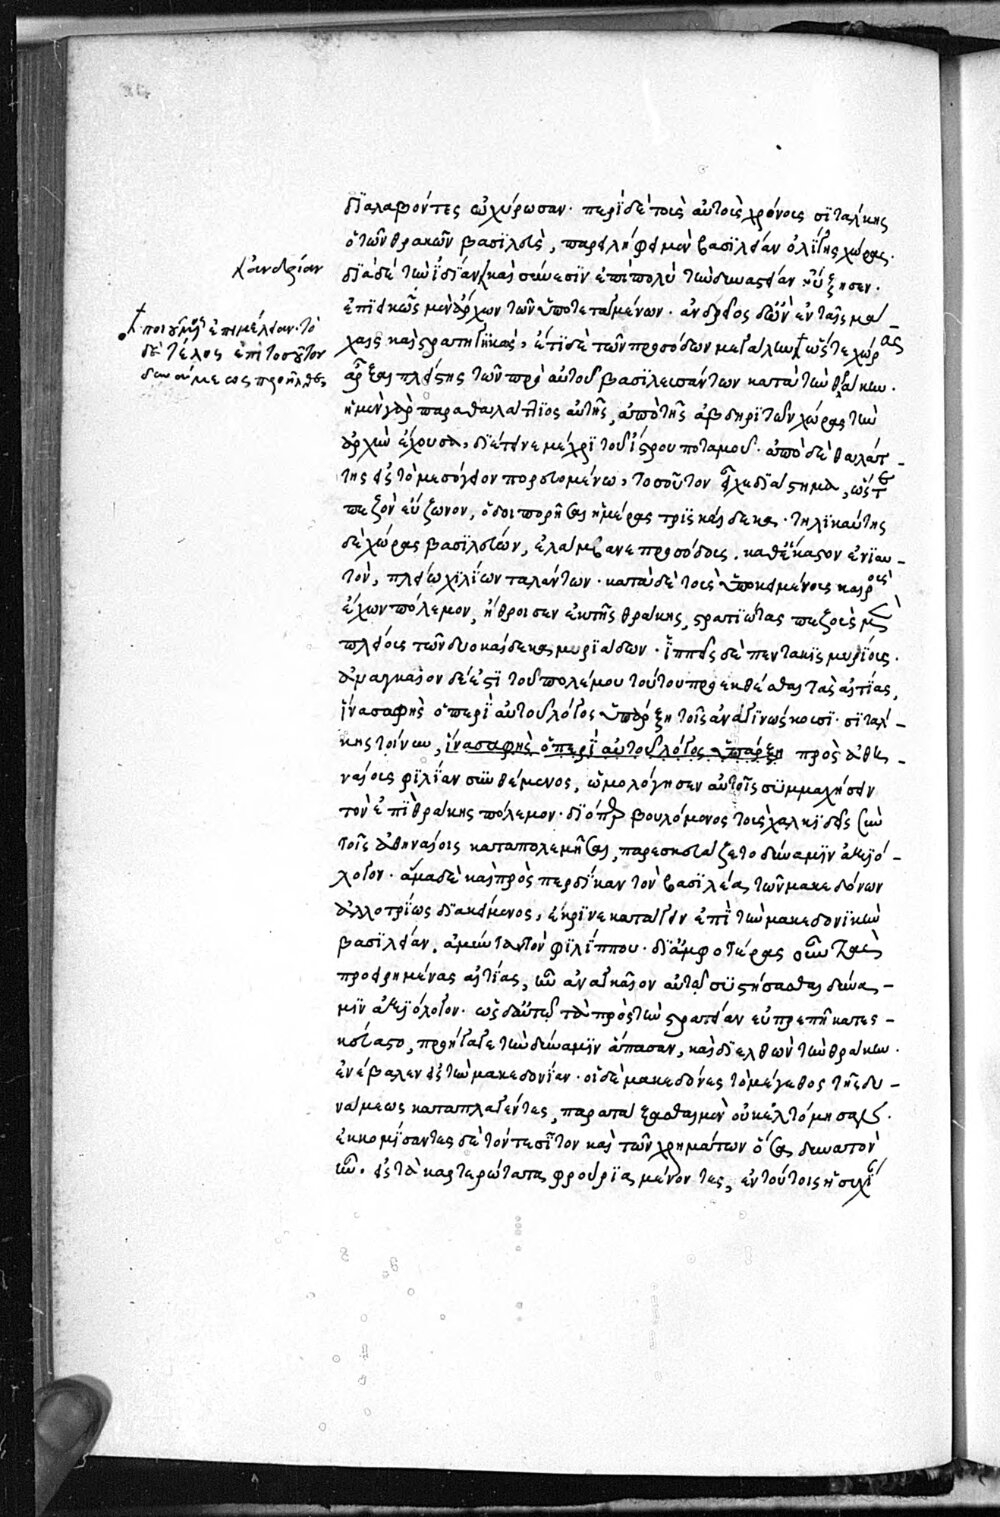 διαλαβόντες ὠχύρωσαν· περὶ δὲ τοὺς αὐτοὺς χρόνους σϊτάλκης
ὁ τῶν θρακῶν βασϊλεὺς, παρειλήφει μὲν βασϊλείαν ὀλίγης χώρας·
ἀνδρείαν
δϊὰ δὲ τὴν ϊδίαν καὶ σύνεσϊν ἐπὶ πολὺ τὴν δυναστείαν ηὔξησεν·
ἐπϊεικῶς μὲν ἄρχων τῶν ὑποτεταγμένων· ἀνδρεῖος δ' ὢν ἐν ταῖς μά-
ποιούμενος ἐπιμέλειαν· τὸ
δὲ τέλος ἐπὶ τοσοῦτον
δυνάμεως προῆλθεν
χαις καὶ στρατηγϊκὸς, ἔτϊ δὲ τῶν προσόδων μεγάλην ὥστε χώρας
ἄρξαι πλείστης τῶν πρὸ αὐτοῦ βασϊλευσάντων κατὰ τὴν θράκην·
ἡ μὲν γὰρ παραθαλάττϊος αὐτῆς, ἀπὸ τῆς ἀβδηρϊτῶν χώρας τὴν
ἀρχὴν ἔχουσα, δϊέτεινε μέχρϊ τοῦ ἴστρου ποταμοῦ· ἀπὸ δὲ θαλάτ-
της εἰς τὸ μεσόγειον πορευομένω, τοσοῦτον εἶχε δϊάστημα, ὥστε
πεζὸν εὔζωνον, ὁδοιπορῆσαι ἡμέρας τρϊσκαίδεκα· τηλϊκαύτης
δὲ χώρας βασϊλεύων, ἐλάμβανε προσόδους, καθ' ἕκαστον ἐνϊαυ-
τὸν, πλείω χϊλίων ταλάντων· κατὰ δὲ τοὺς ὑποκειμένους καιροὺς
ἔχων πόλεμον, ἤθροισεν ἐκ τῆς θράκης, στρατϊώτας πεζοὺς μὲν
πλείους τῶν δυοκαίδεκα μυρϊάδων· ἱππεῖς δὲ πεντακϊς μυρίους·
ἀναγκαῖον δέ ἐστϊ τοῦ πολέμου τούτου προεκθέσθαι τὰς αἰτίας,
ἵνα σαφὴς ὁ περὶ αὐτοῦ λόγος ὑπάρξη τοῖς ἀναγϊνώσκουσϊ· σϊτάλ-
κης τοίνυν, ἵνα σαφὴς ὁ περὶ αὐτοῦ λόγος ὑπάρξη πρὸς ἀθη-
ναίους φϊλίαν συνθέμενος, ὡμολόγησεν αὐτοῖς συμμαχήσειν
τὸν ἐπὶ θράκης πόλεμον· δϊόπερ βουλόμενος τοὺς χαλκϊδεῖς σὺν
τοῖς ἀθηναίοις καταπολεμῆσαι, παρεσκευάζετο δύναμϊν ἀξϊό-
λογον· ἅμα δὲ καὶ πρὸς περδίκαν τὸν βασϊλέα τῶν μακεδόνων
ἀλλοτρίως δϊακείμενος, ἔκρϊνε κατάγειν ἐπὶ τὴν μακεδονϊκὴν
βασϊλείαν, ἀμύνταν τὸν φϊλίππου· δϊ' ἀμφοτέρας οὖν τὰς
προειρημένας αἰτίας, ἦν ἀναγκαῖον αὐτῶ συστήσασθαι δύνα-
μϊν ἀξϊόλογον· ὡς δ' αὐτῶ τὰ πρὸς τὴν στρατείαν εὐπρεπῆ κατεσ-
κεύαστο, προήγαγε τὴν δύναμϊν ἅπασαν, καὶ δϊελθὼν τὴν θράκην·
ἐνέβαλεν εἰς τὴν μακεδονίαν· οἱ δὲ μακεδόνες τὸ μέγεθος τῆς δυ-
νάμεως καταπλαγέντες, παρατάξασθαι μὲν οὐκ ἐτόλμησαν·
ἐκκομίσαντες δὲ τόν τε σῖτον καὶ τῶν χρημάτων ὅσα δυνατὸν
ἦν· εἰς τὰ καρτερώτατα φρούρϊα μένοντες, ἐν τούτοις ἡσυχί